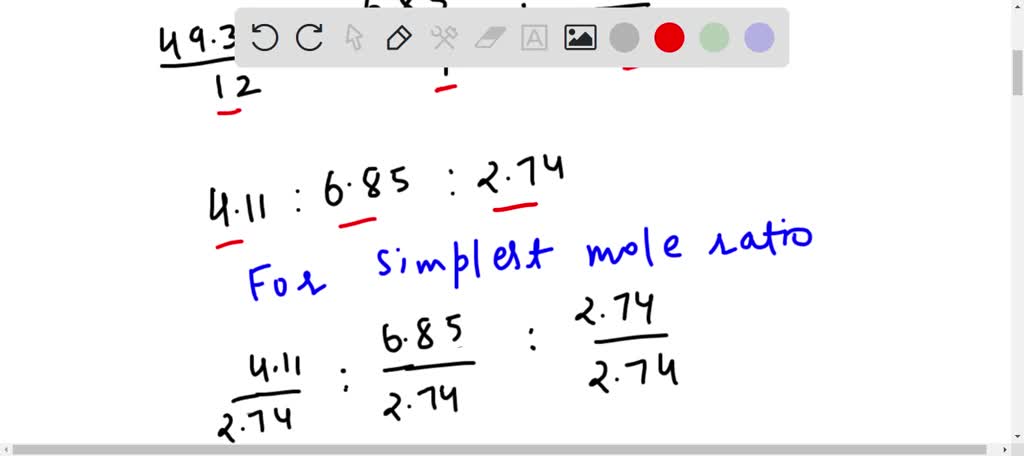 6.85 :
49.3
12 1
4.11 : 6.85 : 2.74
For simplest mole ratio
4.11 : 6.85 : 2.74
2.74 2.74 2.74